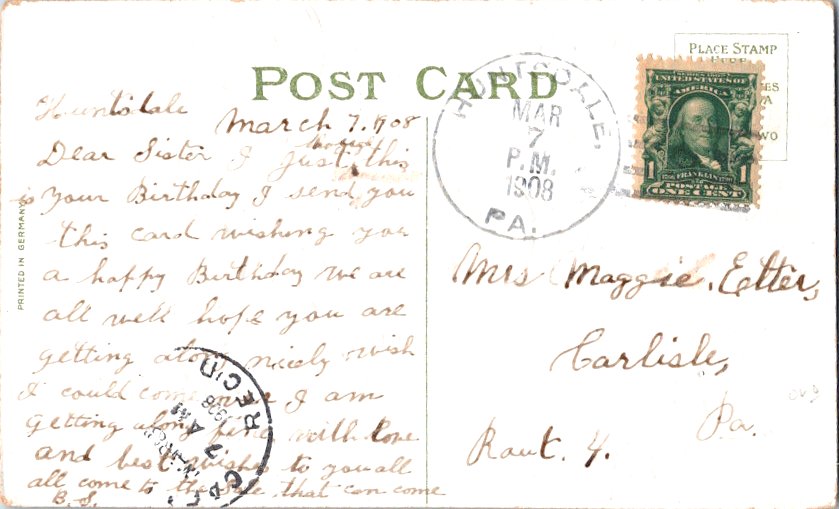 POST CARD
PLACE STAMP
HERE
WO
PRINTED IN GERMANY
Huntsdale
March 7. 1908
Dear Sister I just thought this
is your Birthday I send you
this card wishing you
a happy Birthday we are
all well hope you are
getting along nicely wish
I could come over I am
getting along fine with love
and best wishes to you all
all come to the sale that can come
B. S.
HUNTSDALE,
MAR
7
P.M.
1908
PA.
SERIES 1902
UNITED STATES OF
AMERICA
1 FRANKLIN 1
POSTAGE
ONE CENT
Mrs Maggie Etter,
Carlisle,
Pa.
Rout. 4.
REC'D
1908
7 AM